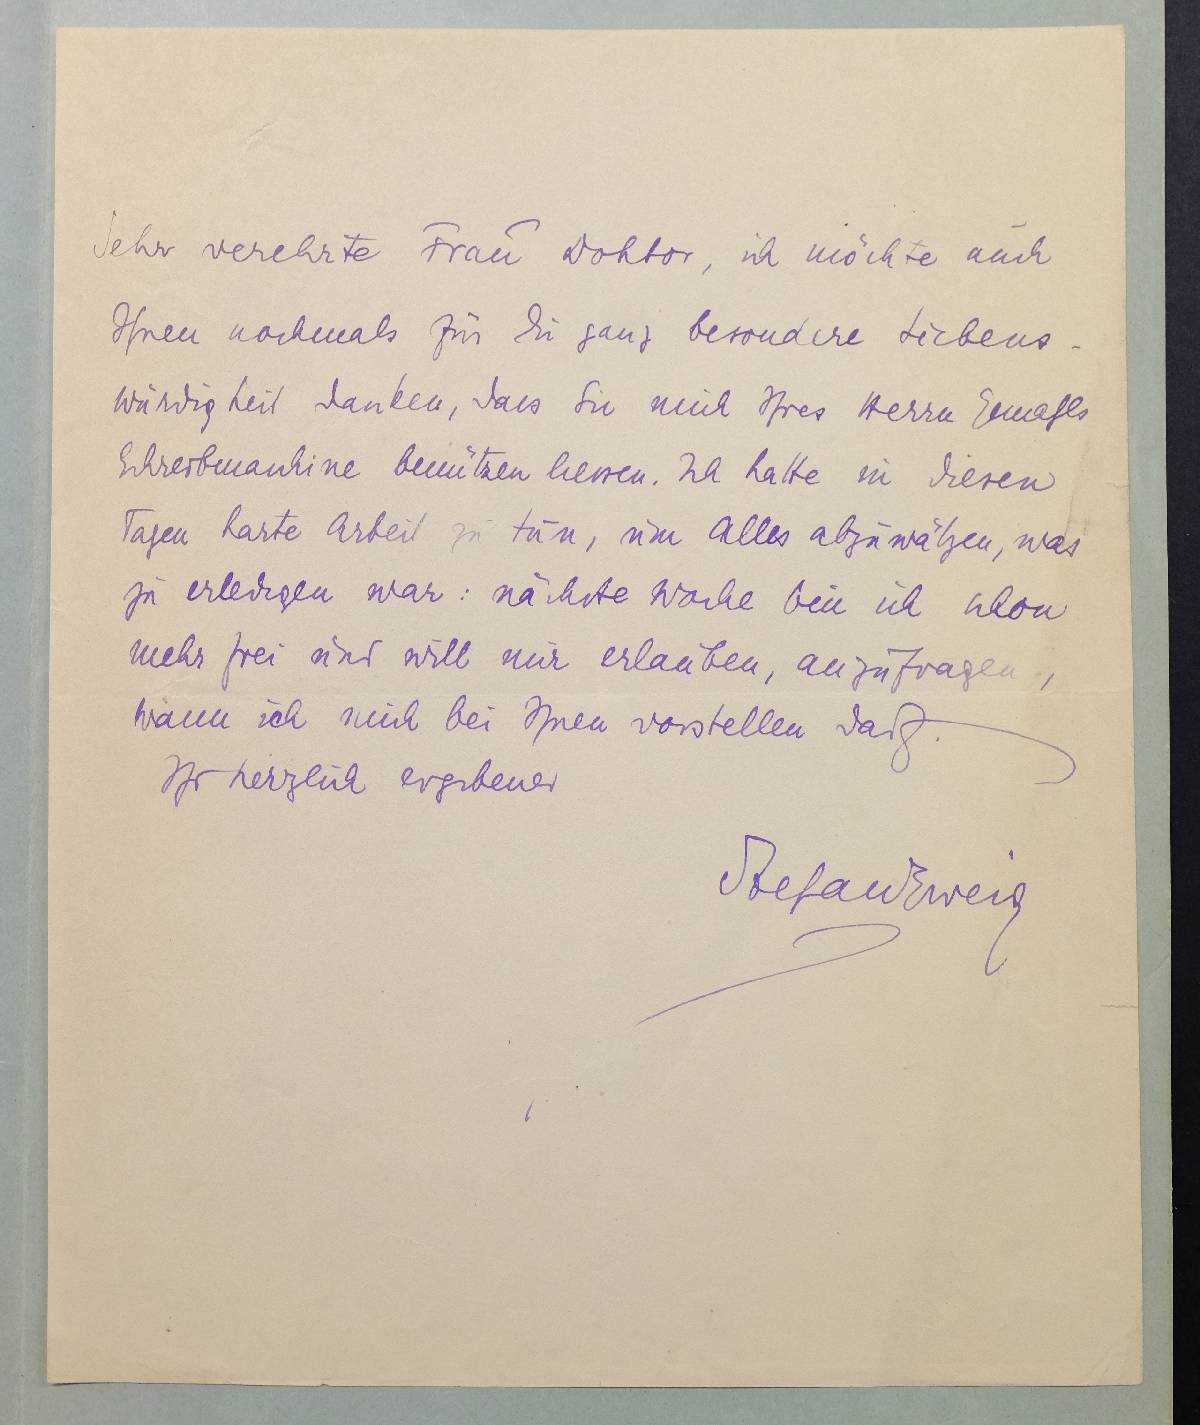 Sehr verehrte Frau Doktor, ich möchte auch
Ihnen nochmals für die ganz besondere Liebens-
würdigkeit danken, dass Sie mich Ihres Herrn Gemahls
Schreibmaschine benützen liessen. Ich hatte in diesen
Tagen harte Arbeit zu tun, um Alles abzuwälzen, was
zu erledigen war: nächste Woche bin ich schon
mehr frei und will mir erlauben, anzufragen,
wann ich mich bei Ihnen vorstellen darf.
Ihr herzlich ergebener
Stefan Zweig